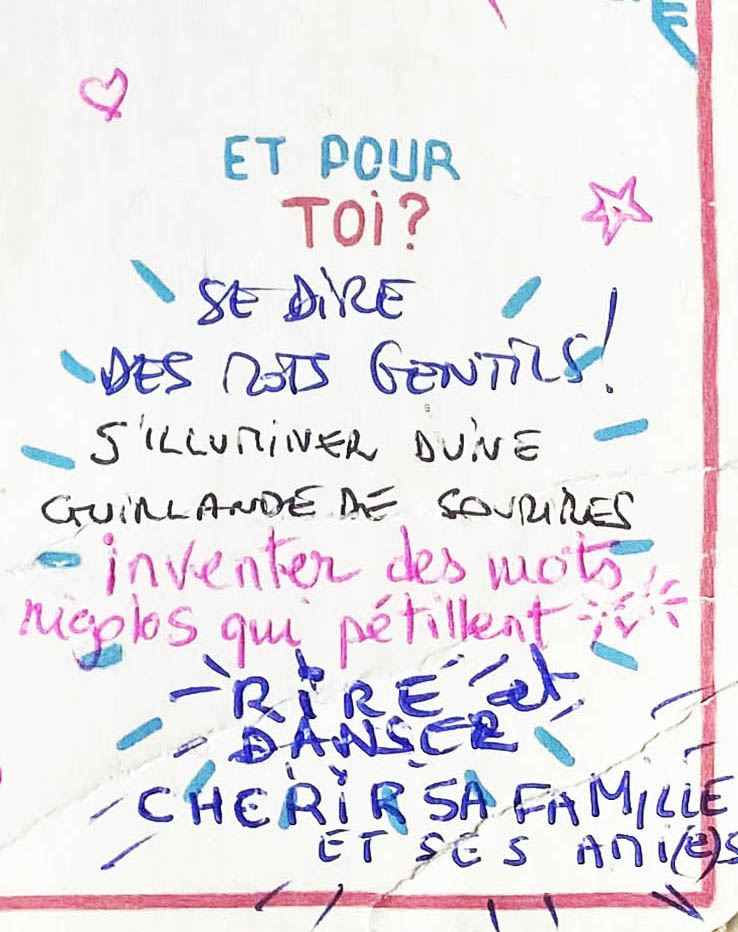 ET POUR
TOI?
SE DIRE
DES MOTS GENTILS!
S'ILLUMINER D'UNE
GUIRLANDE DE SOURIRES
inventer des mots
rigolos qui pétillent
RIRE et
DANSER
CHERIR SA FAMILLE
ET SES AMI(E)S